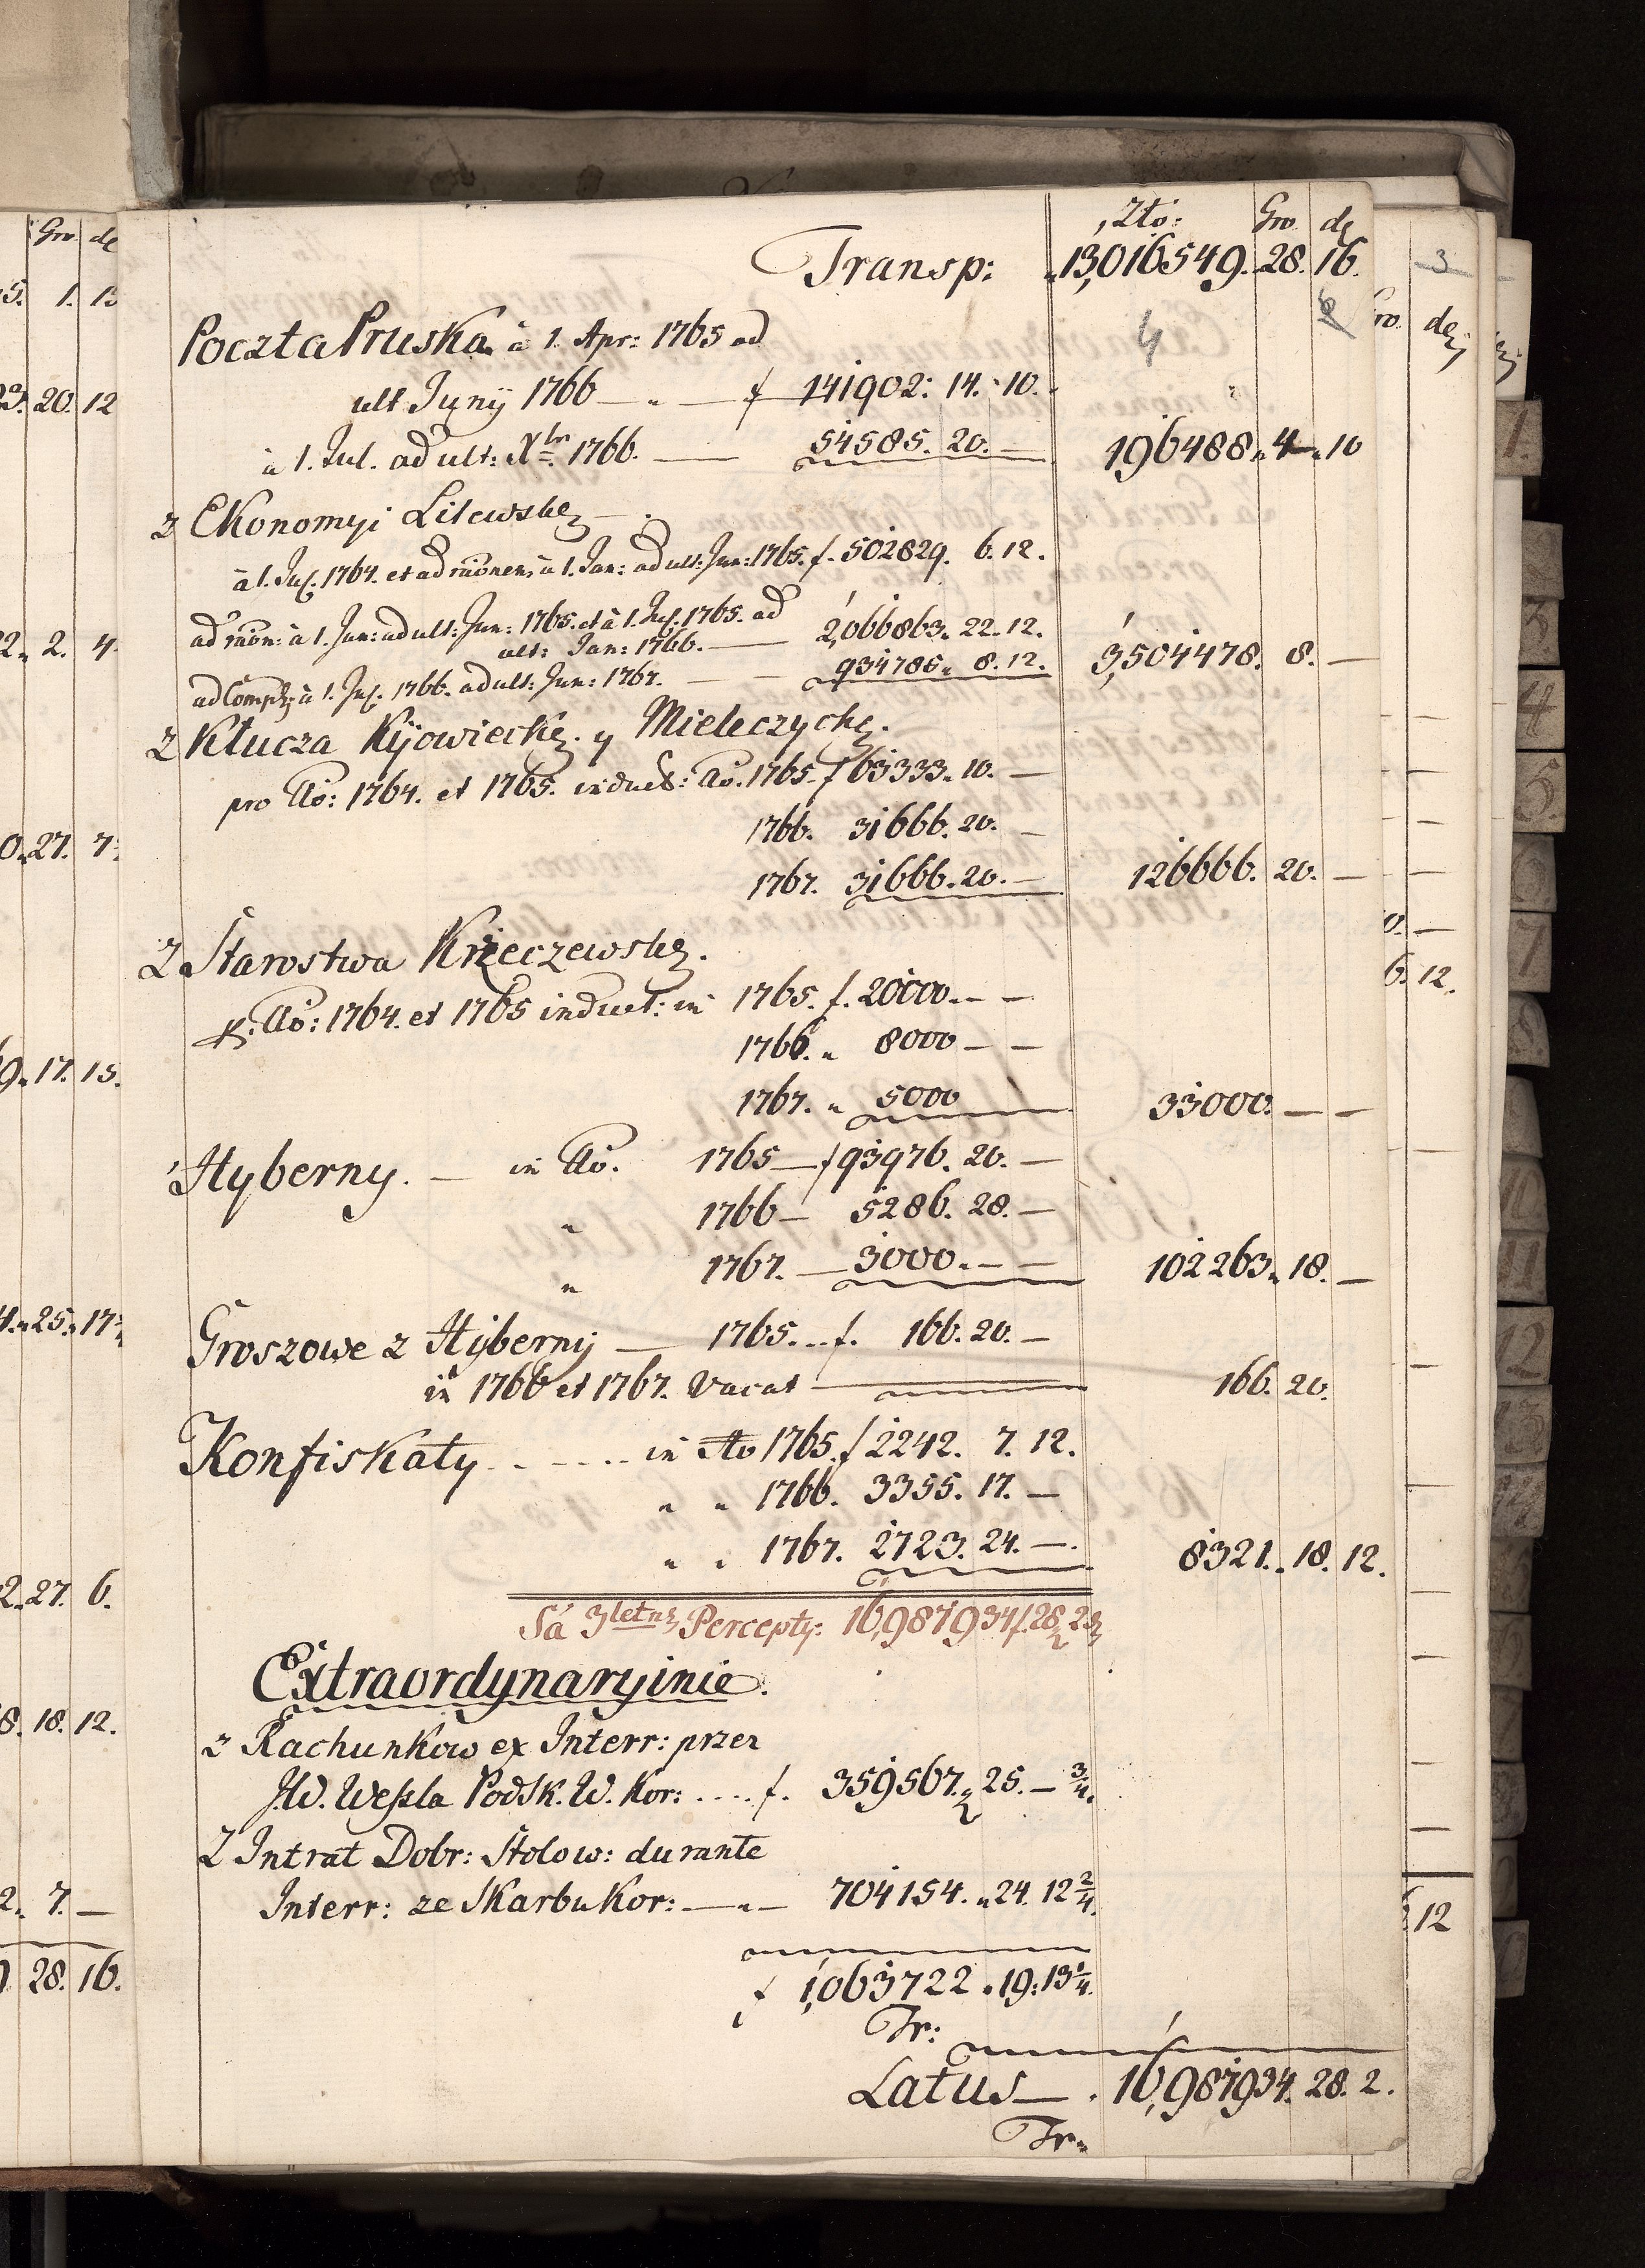 Zło: Gro de
Transp: 13,016549. 28. 16.
4 6
Poczta Pruska à 1. Apr: 1765 ad
ult Junÿ 1766 — „ — f 141902: 14.. 10.
à 1. Jul. ad ult: Xbr 1766. — 54585. 20. — 196488 „ 4 „ 10
z Ekonomyi Litewskey —.
à 1. Jul. 1764. et ad raōnem à 1. Jan: ad ult: Jun: 1765. f. 502829. 6. 12.
ad raōn: à 1. Jan: ad ult: Jun: 1765. et à 1. Jul. 1765. ad
ult: Jan: 1766. — 2,066863. 22. 12.
ad Compl: à 1. Jul. 1766. ad ult: Jun: 1767. — — 934785 „ 8. 12. 3,504478. 8. —
z Klucza Kÿowieckie. y Mieleczyckie.
pro Aō: 1764. et 1765. induct: Aō. 1765. f 63333. 10. —
1766. 31666. 20. —
1767. 31666. 20. — 126666. 20. —
Z Starostwa Krzeczewskie.
p. Aō: 1764. et 1765 induct: in 1765. f. 20000. — —
1766. „ 8000 — —
1767. „ 5000 33000. — —
Hyberny. — in Aō. 1765 — f 93976. 20. —
„ 1766 — 5286. 28. —
„ 1767. — 3000. — — 102263 „ 18. —
Groszowe z Hÿbernÿ — 1765... f. 166. 20. —
in 1766 et 1767. Vacat — 166. 20.
Konfiskaty . . - - - .. in Ao 1765. f 2242. 7. 12.
„ „ 1766. 3355. 17. —
„ „ 1767. 2723. 24. —. 8321.. 18. 12.
Sá 3letn: Percepty: 16,987934 f. 28 2
Extraordynaryinie.
z Rachunkow ex Interr: przez
J.W. Weſsla Podsk. W. Kor: .... f. 359567. „ 25. — 3/4.
Z Intrat Dobr: Stolow: durante
Interr: ze Skarbu Kor: — „ — 704154. „ 24. 12 2/4.
f 1,063722 „ 19: 13 1/4.
Tr:
Latus — . 16,987934. 28. 2.
Tr: